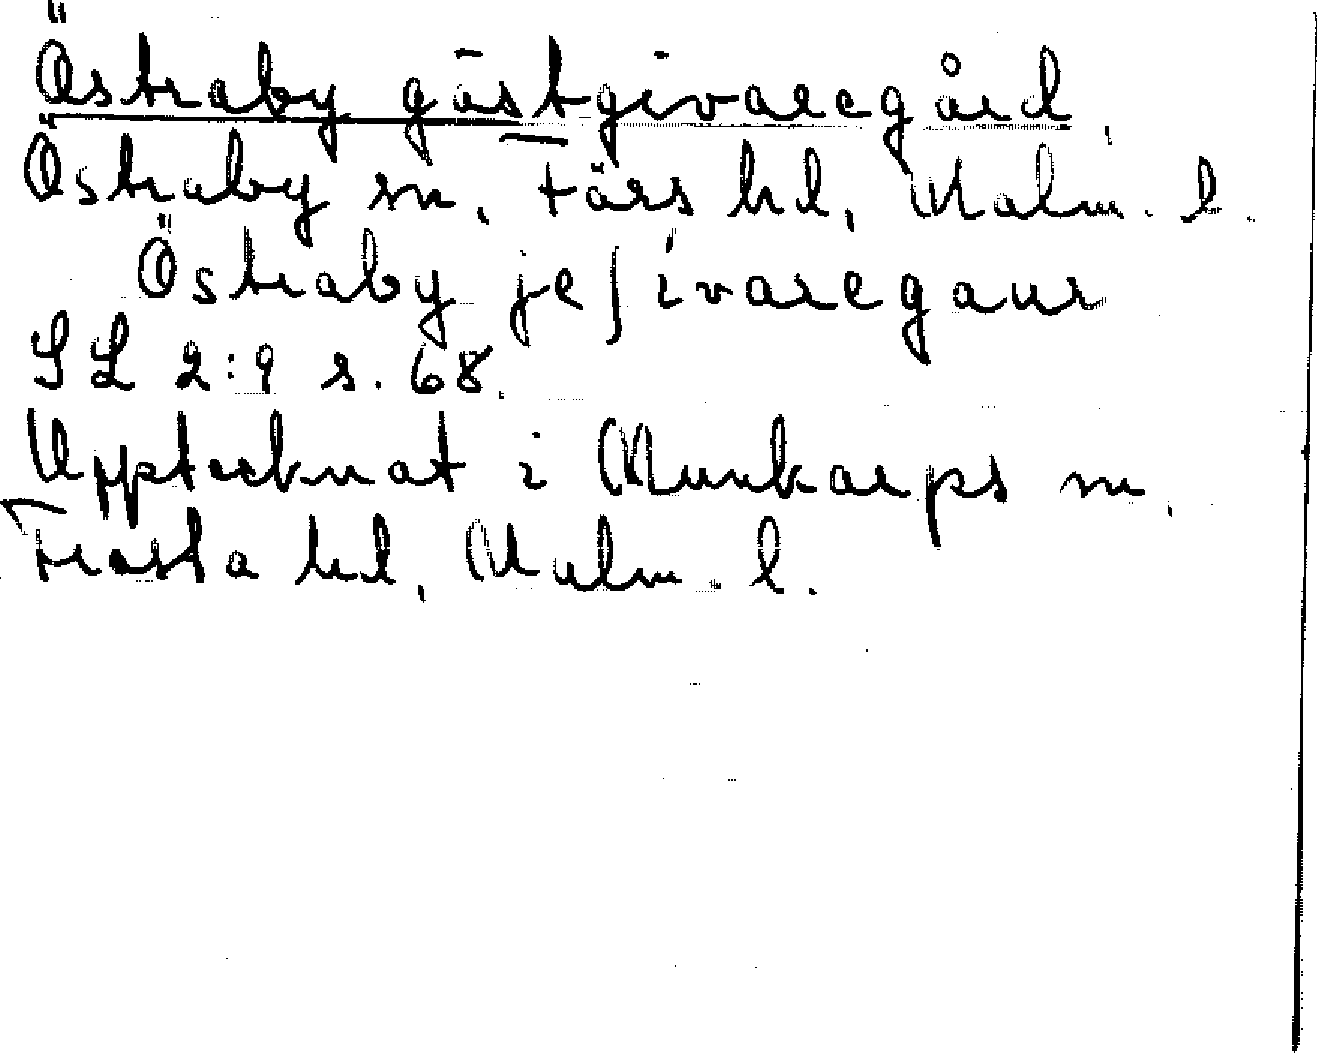 Östraby gästgivaregård,
Östraby sn, Färs hd, Malm. l.
Östraby jeſivaregaur
SL 2:9 s. 68.
Upptecknat i Munkarps sn,
Frosta hd, Malm. l.